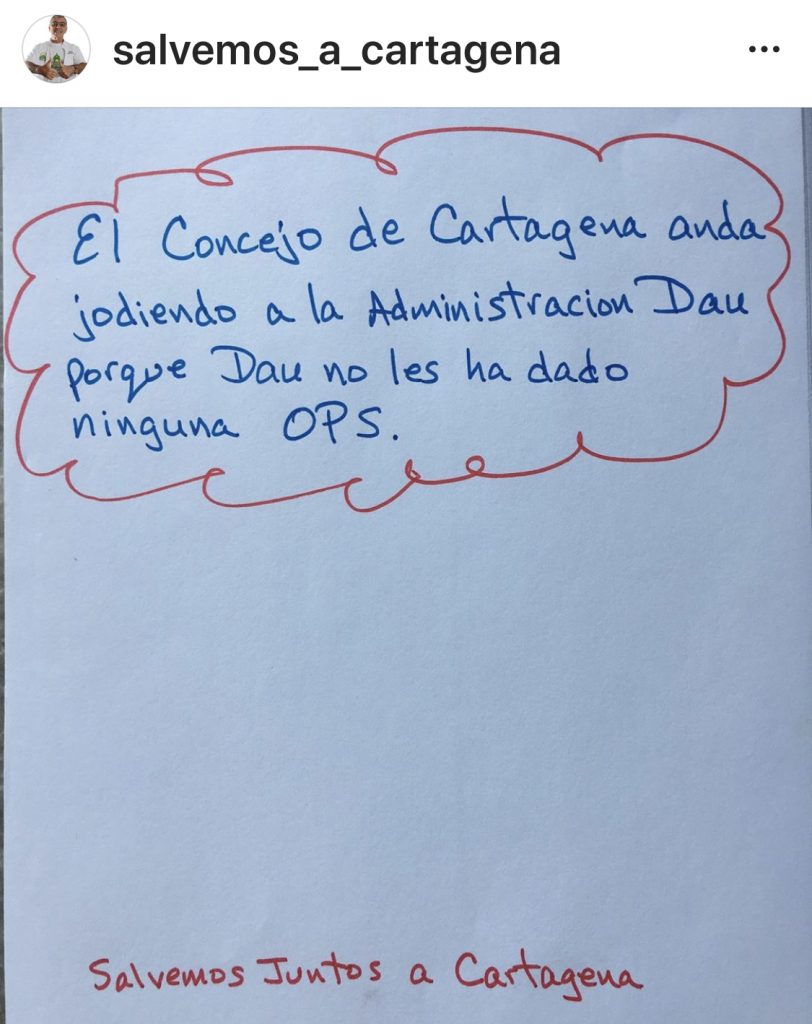 salvemos_a_cartagena
El Concejo de Cartagena anda
jodiendo a la Administracion Dau
porque Dau no les ha dado
ninguna OPS.
Salvemos Juntos a Cartagena